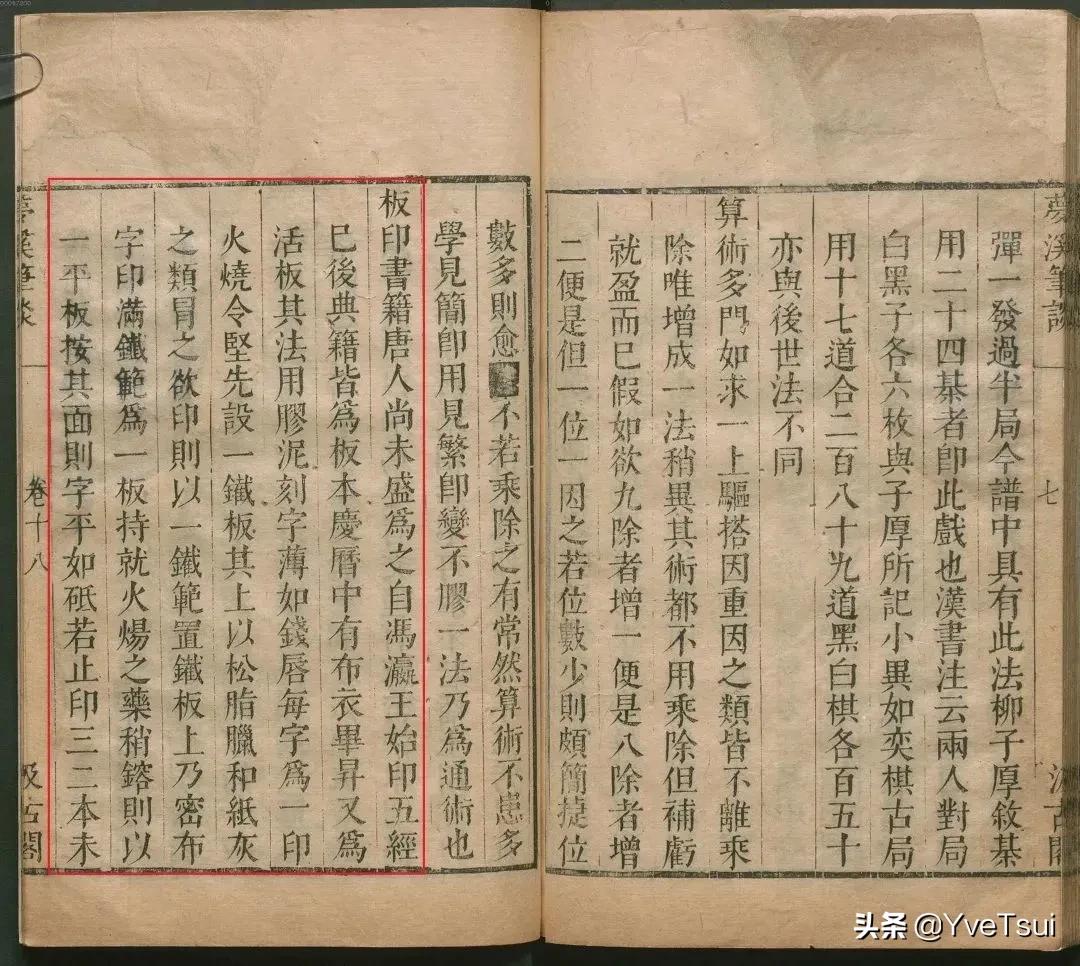 夢溪筆談
七
汲古閣
彈一發過半局今譜中具有此法柳子厚敘棊
用二十四棊者卽此戲也漢書注云兩人對局
白黑子各六枚與子厚所記小異如奕棋古局
用十七道合二百八十九道黑白棋各百五十
亦與後世法不同
算術多門如求一上驅搭因重因之類皆不離乘
除唯增成一法稍異其術都不用乘除但補虧
就盈而已假如欲九除者增一便是八除者增
二便是但一位一因之若位數少則頗簡捷位
數多則愈不若乘除之有常然算術不患多
學見簡卽用見繁卽變不膠一法乃爲通術也
板印書籍唐人尚未盛爲之自馮瀛王始印五經
已後典籍皆爲板本慶曆中有布衣畢昇又爲
活板其法用膠泥刻字薄如錢唇每字爲一印
火燒令堅先設一鐵板其上以松脂臘和紙灰
之類冒之欲印則以一鐵範置鐵板上乃密布
字印滿鐵範爲一板持就火煬之藥稍鎔則以
一平板按其面則字平如砥若止印三二本未
夢溪筆談
卷十八
汲古閣
头条 @YveTsui